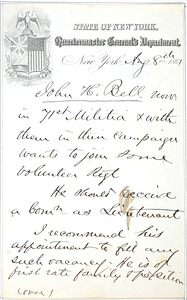 STATE OF NEW YORK,
Quartermaster General's Department,
New York Aug 8th 186
John H. Bell now
in 71st Militia & with
them in their campaign
wants to join some
Volunteer Regt
He should receive
a Comn as Lieutenant
I recommend his
appointment to fill any
such vacancy - He is of
first rate family & position
(over)